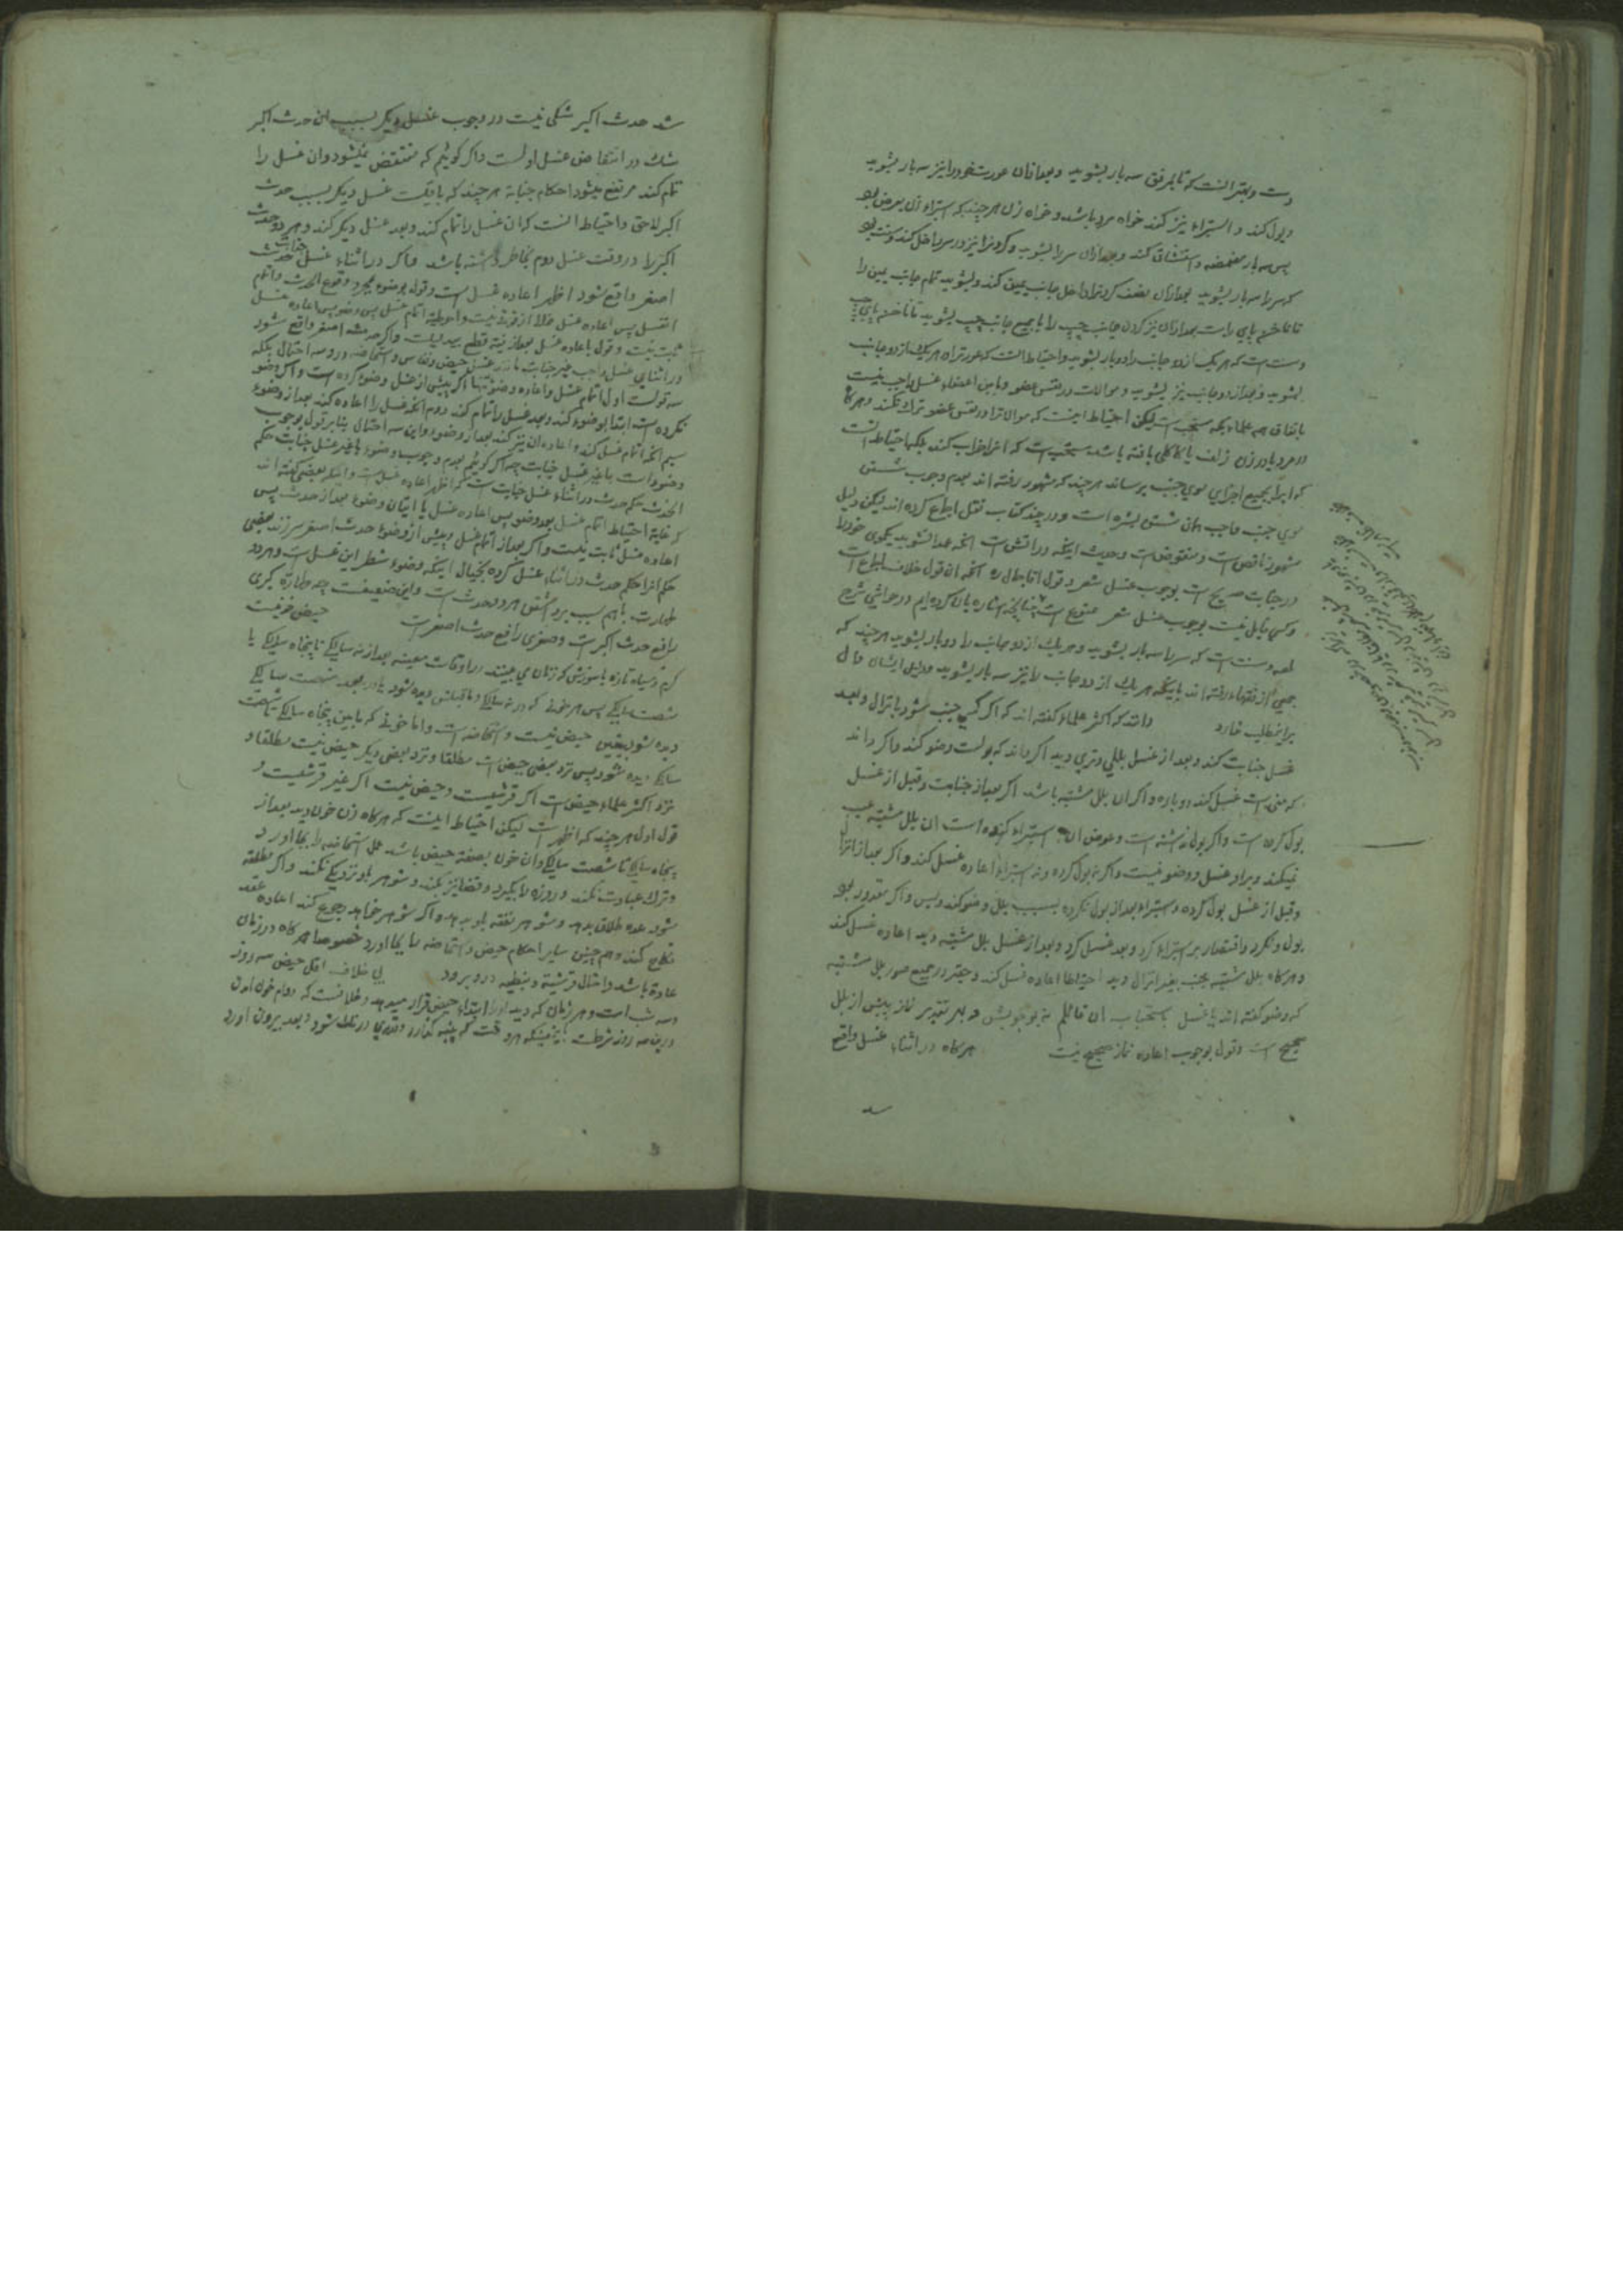 دست و بهتر آنست که تا مرفق سه بار بشوید و بعد از آن عورت خود را نیز سه بار بشوید
و بول کند و استبراء نیز کند خواه مرد باشد و خواه زن هر چند که استبراء زن بعرض بود
پس سه بار مضمضه و استنشاق کند و بعد از آن سر را بشوید و گردن را نیز در سر داخل کند و سنت بود
که سر را سه بار بشوید بعد از آن نصف گردن را داخل جانب یمین کند و بشوید تمام جانب یمین را
تا ناخن پای راست بعد از آن نیز گردن جانب چپ را با جمیع جانب چپ بشوید تا ناخن پای چپ
و سنت است که هر یک از دو جانب را دو بار بشوید و احتیاط آنست که عورت را با هر یک از دو جانب
بشوید و بعد از دو جانب نیز بشوید و موالات در نفس عضو و مابین اعضاء غسل واجب نیست
باتفاق همه علماء بلکه مستحب است لیکن احتیاط اینست که موالات را در نفس عضو ترک نکند و هرگاه
در مرد یا در زن زلف یا کاکلی بافته باشد مستحب است که آنرا خراب کند بلکه احتیاط آنست
که آب را بجمیع اجزای موی جنب برساند هر چند که مشهور رفته اند بعدم وجوب شستن
موی جنب و واجب همان شستن بشره است و در چند کتاب نقل اجماع کرده اند لیکن دلیل
مشهور ناقص است و منقوض است و حدیث اینکه در آتش است آنکه عمدا نشوید یکموی خود را
در جنابت صریح است بوجوب غسل شعر و قول آقا جمال ره آنکه آن قول خلاف اجماع است
و کسی قایل نیست بوجوب غسل شعر ممنوع است چنانچه اشاره بآن کرده ایم در حواشی شرح
لمعه و سنت است که سر را سه بار بشوید و هر یک از دو جانب را دو بار بشوید هر چند که
جمعی از فقهاء رفته اند باینکه هر یک از دو جانب را نیز سه بار بشوید و دلیل ایشان دال
براین مطلب ندارد بدانکه اکثر علماء گفته اند که اگر کسی جنب شود بانزال و بعد
غسل جنابت کند و بعد از غسل بللی و تری دید اگر داند که بولست وضو کند و اگر داند
که منی است غسل کند دوباره و اگر آن بلل مشتبه باشد اگر بعد از جنابت و قبل از غسل
بول کرده است و اگر بول نداشته است و عوض آن استبراء کرده است آن بلل مشتبه عیب
نمیکند و بر او غسل و وضو نیست و اگر نه بول کرده و نه استبراء اعاده غسل کند و اگر بعد از انزال
و قبل از غسل بول کرده و استبراء بعد از بول نکرده بسبب بلل وضو کند و بس و اگر مقدور بود
بول و نکرد و اقتصار بر استبراء کرد و بعد غسل کرد و بعد از غسل بلل مشتبه دید اعاده غسل کند
و هرگاه بلل مشتبه جنب بغیر انزال دید احتیاطا اعاده غسل کند و بهتر در جمیع صور بلل مشتبه
که وضو گفته اند یا غسل باستحباب آن قائلم نه بوجوبش و بهر تقدیر نماز پیش از بلل
صحیح است و قول بوجوب اعاده نماز صحیح نیست هرگاه در اثناء غسل واقع
شد حدث اکبر شکی نیست در وجوب غسل دیگر بسبب آن حدث اکبر
شک در انتقاض غسل اولست و اگر گوئیم که منتقض نمیشود و آن غسل را
تمام کند مرتفع میشود احکام جنابة هر چند که باقیست غسل دیگر بسبب حدث
اکبر لاحق و احتیاط آنست که آن غسل را تمام کند و بعد غسل دیگر کند و هر دو حدث
اکبر را در وقت غسل دوم بخاطر داشته باشد و اگر در اثناء غسل جنابت حدث
اصغر واقع شود اظهر اعاده غسل است و قول بوضوء بمجرد وقوع الحدث و اتمام
الغسل پس اعاده غسل خالی از قوة نیست و احوط اتمام غسل پس وضو پس اعاده غسل
ثابت نیست و قول باعاده غسل بعد از نیة قطع بیدلیلست و اگر حدث اصغر واقع شود
در اثنای غسل واجب غیر جنابت مانند غسل حیض و نفاس و استحاضه در او سه احتمال بلکه
سه قولست اول اتمام غسل و اعاده وضو تنها اگر پیش از غسل وضوء کرده است و اگر وضو
نکرده است ابتدا بوضوء کند و بعد غسل را تمام کند دوم آنکه غسل را اعاده کند بعد از وضوء
سیم آنکه اتمام غسل کند و اعاده آن نیز کند بعد از وضوء و این سه احتمال بنابر قول بوجوب
وضوء است با غیر غسل جنابت چه اگر گوئیم بعدم وجوب وضوء با غیر غسل جنابت حکم
الحدث حکم حدث در اثناء غسل جنابت است که اظهر اعاده غسل است و اینکه بعضی گفته اند
که غایة احتیاط اتمام غسل بود وضو پس اعاده غسل یا ایتان وضوء بعد از حدث پس
اعاده غسل ثابت نیست و اگر بعد از اتمام غسل و پیش از وضوء حدث اصغر سر زند بعضی
حکم آنرا حکم حدث در اثناء غسل کرده بخیال اینکه وضوء شطر این غسل است و هر دو
طهارت با هم سبب برداشتن هر دو حدث است و این ضعیفست چه طهارة کبری
رافع حدث اکبر است و صغری رافع حدث اصغر است حیض خونیست
گرم و سیاه تازه با سوزش که زنان می بینند در اوقات معینه بعد از نه سالگی تا پنجاه سالگی یا
شصت سالگی پس هر خونی که در نه سالگی و ما قبلش دیده شود یا در بعد شصت سالگی
دیده شود بیقین حیض نیست و استحاضه است و اما خونی که مابین پنجاه سالگی تا شصت
سالگی دیده شود پس نزد بعضی حیض است مطلقا و نزد بعضی دیگر حیض نیست مطلقا و
نزد اکثر علماء حیض است اگر قرشیست و حیض نیست اگر غیر قرشیست و
قول اول هر چند که اظهر است لیکن احتیاط اینست که هرگاه زن خون دید بعد از
پنجاه سالگی تا شصت سالگی و آن خون بصفة حیض باشد عمل استحاضه را بجا آورد
و ترک عبادت نکند و روزه را بگیرد و قضا نیز بکند و شوهر باو نزدیکی نکند و اگر مطلقه
شود عده طلاق بدهد و شوهر نفقه باو بدهد و اگر شوهر خواهد رجوع کند اعاده عقد
نکاح کند و همچنین سایر احکام حیض و استحاضه را بجا آورد خصوصا هرگاه در زمان
عادة باشد و احتمال قرشیة و نبطیه در و برود بی خلاف اقل حیض سه روز
و سه شب است و هر زمان که دید آنرا ابتداء حیض قرار میدهد و خلافست که دوام خون در آن
در این سه روز شرطست باینمعنی که هر وقت که پنبه گذارد و قدری درنگ شود و بعد بیرون آورد